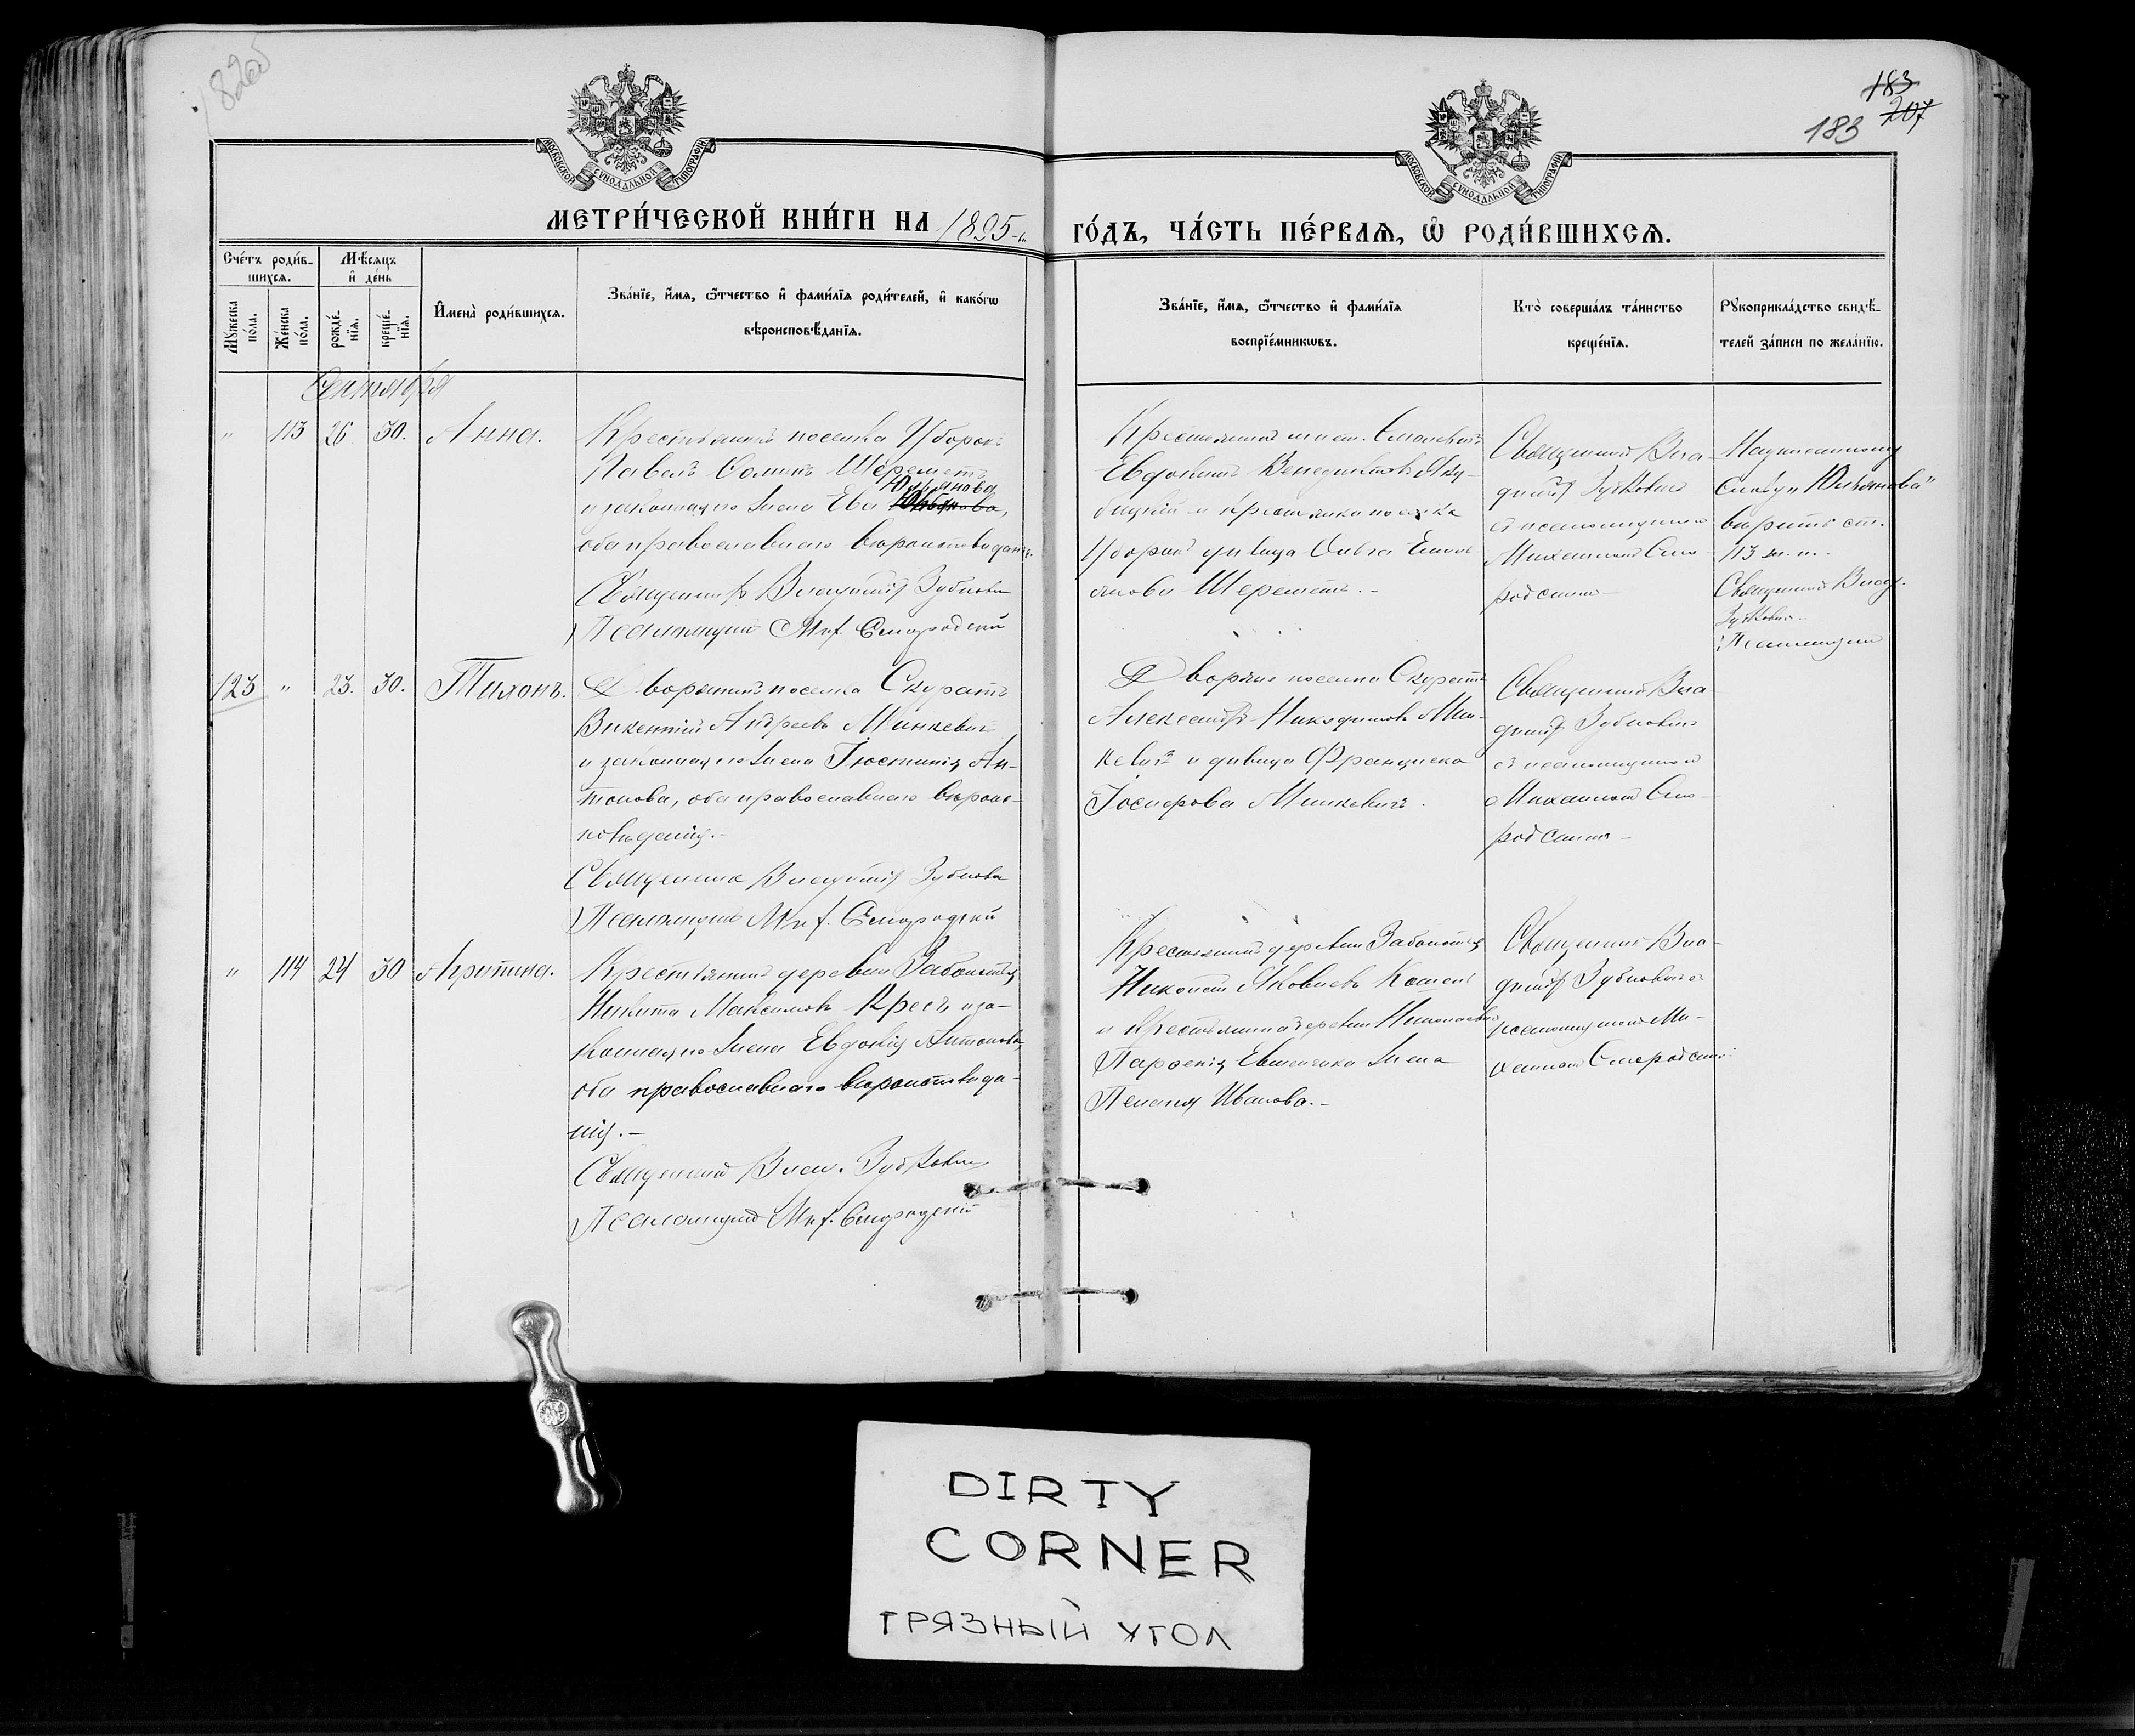 182об
183
207
183
МОСКОВСКОЙ СѴНОДАЛЬНОЙ ТИПОГРАФІИ
МОСКОВСКОЙ СѴНОДАЛЬНОЙ ТИПОГРАФІИ
МЕТРИ́ЧЕСКОЙ КНИ́ГИ НА 1895 го́дъ, ча́сть пе́рваѧ, ѡ҆ роди́вшихсѧ.
Сче́тъ роди́в-
шихсѧ.
Мꙋ́жеска по́ла.
Же́нска по́ла.
Мѣ́сѧцъ
и҆ де́нь
рожде́-
нїѧ.
креще́-
нїѧ.
И҆мена̀ роди́вшихсѧ.
Зва́нїе, и҆́мѧ, ѻ҆́тчество и҆ фами́лїѧ роди́телей, и҆ како́гѡ
вѣроисповѣ́данїѧ.
Зва́нїе, и҆́мѧ, ѻ҆́тчество и҆ фами́лїѧ
воспрїе́мникѡвъ.
Кто̀ соверша́лъ та́инство
креще́нїѧ.
Рꙋкоприкла́дство свидѣ́-
телей за́писи по жела́нїю.
Сентября
" 113 26 30. Анна.
Крестьянинъ поселка Уборокъ
Павелъ Шереметъ
Юльянова
и законная его жена Ева
оба православнаго вѣроисповѣданія.
Священникъ Владиміръ Зубковичъ
Псаломщикъ Мих. Смородскій
Крестьянинъ мѣст. Смолевичъ
Евдокимъ Венедиктовъ Яку-
бицкій и крестьянка поселка
Уборокъ дѣвица
Шереметъ.-
Священникъ Вла-
диміръ Зубковичъ
съ псаломщикомъ
Михаиломъ Смо-
родскимъ
Надписанному
слову "Юльянова"
вѣрить ст.
113 ж. п.
Священникъ Влад.
Зубковичъ.
Псаломщикъ
123 " 23. 30. Тихонъ.
Дворянинъ поселка Скуратъ
Викентій Андреевъ Минкевичъ
и законная его жена Іюстинія Ан-
тонова, оба православнаго вѣроис-
повѣданія.-
Священникъ Владиміръ Зубковичъ
Псаломщикъ Мих. Смородскій
Дворяне поселка Скуратъ
Александръ Никодимовъ Мин-
кевичъ и дѣвица Франциска
Іосифова Минкевичъ.
Священникъ Вла-
диміръ Зубковичъ
съ псаломщикомъ
Михаиломъ Смо-
родскимъ
" 114 24 30 Агрипина.
Крестьянинъ деревни Заболотья
Никита Максимовъ Кресъ и за-
конная его жена Евдокія Антонова,
оба православнаго вѣроисповѣда-
нія.-
Священникъ Влад. Зубковичъ
Псаломщикъ Мих. Смородскій
Крестьянинъ деревни Заболотья
Яковлевъ
и крестьянина деревни
жена
Пелагія Иванова.-
Священникъ Вла-
диміръ Зубковичъ съ
псаломщикомъ Ми-
хаиломъ Смородскимъ
DIRTY
CORNER
ГРЯЗНЫЙ УГОЛ